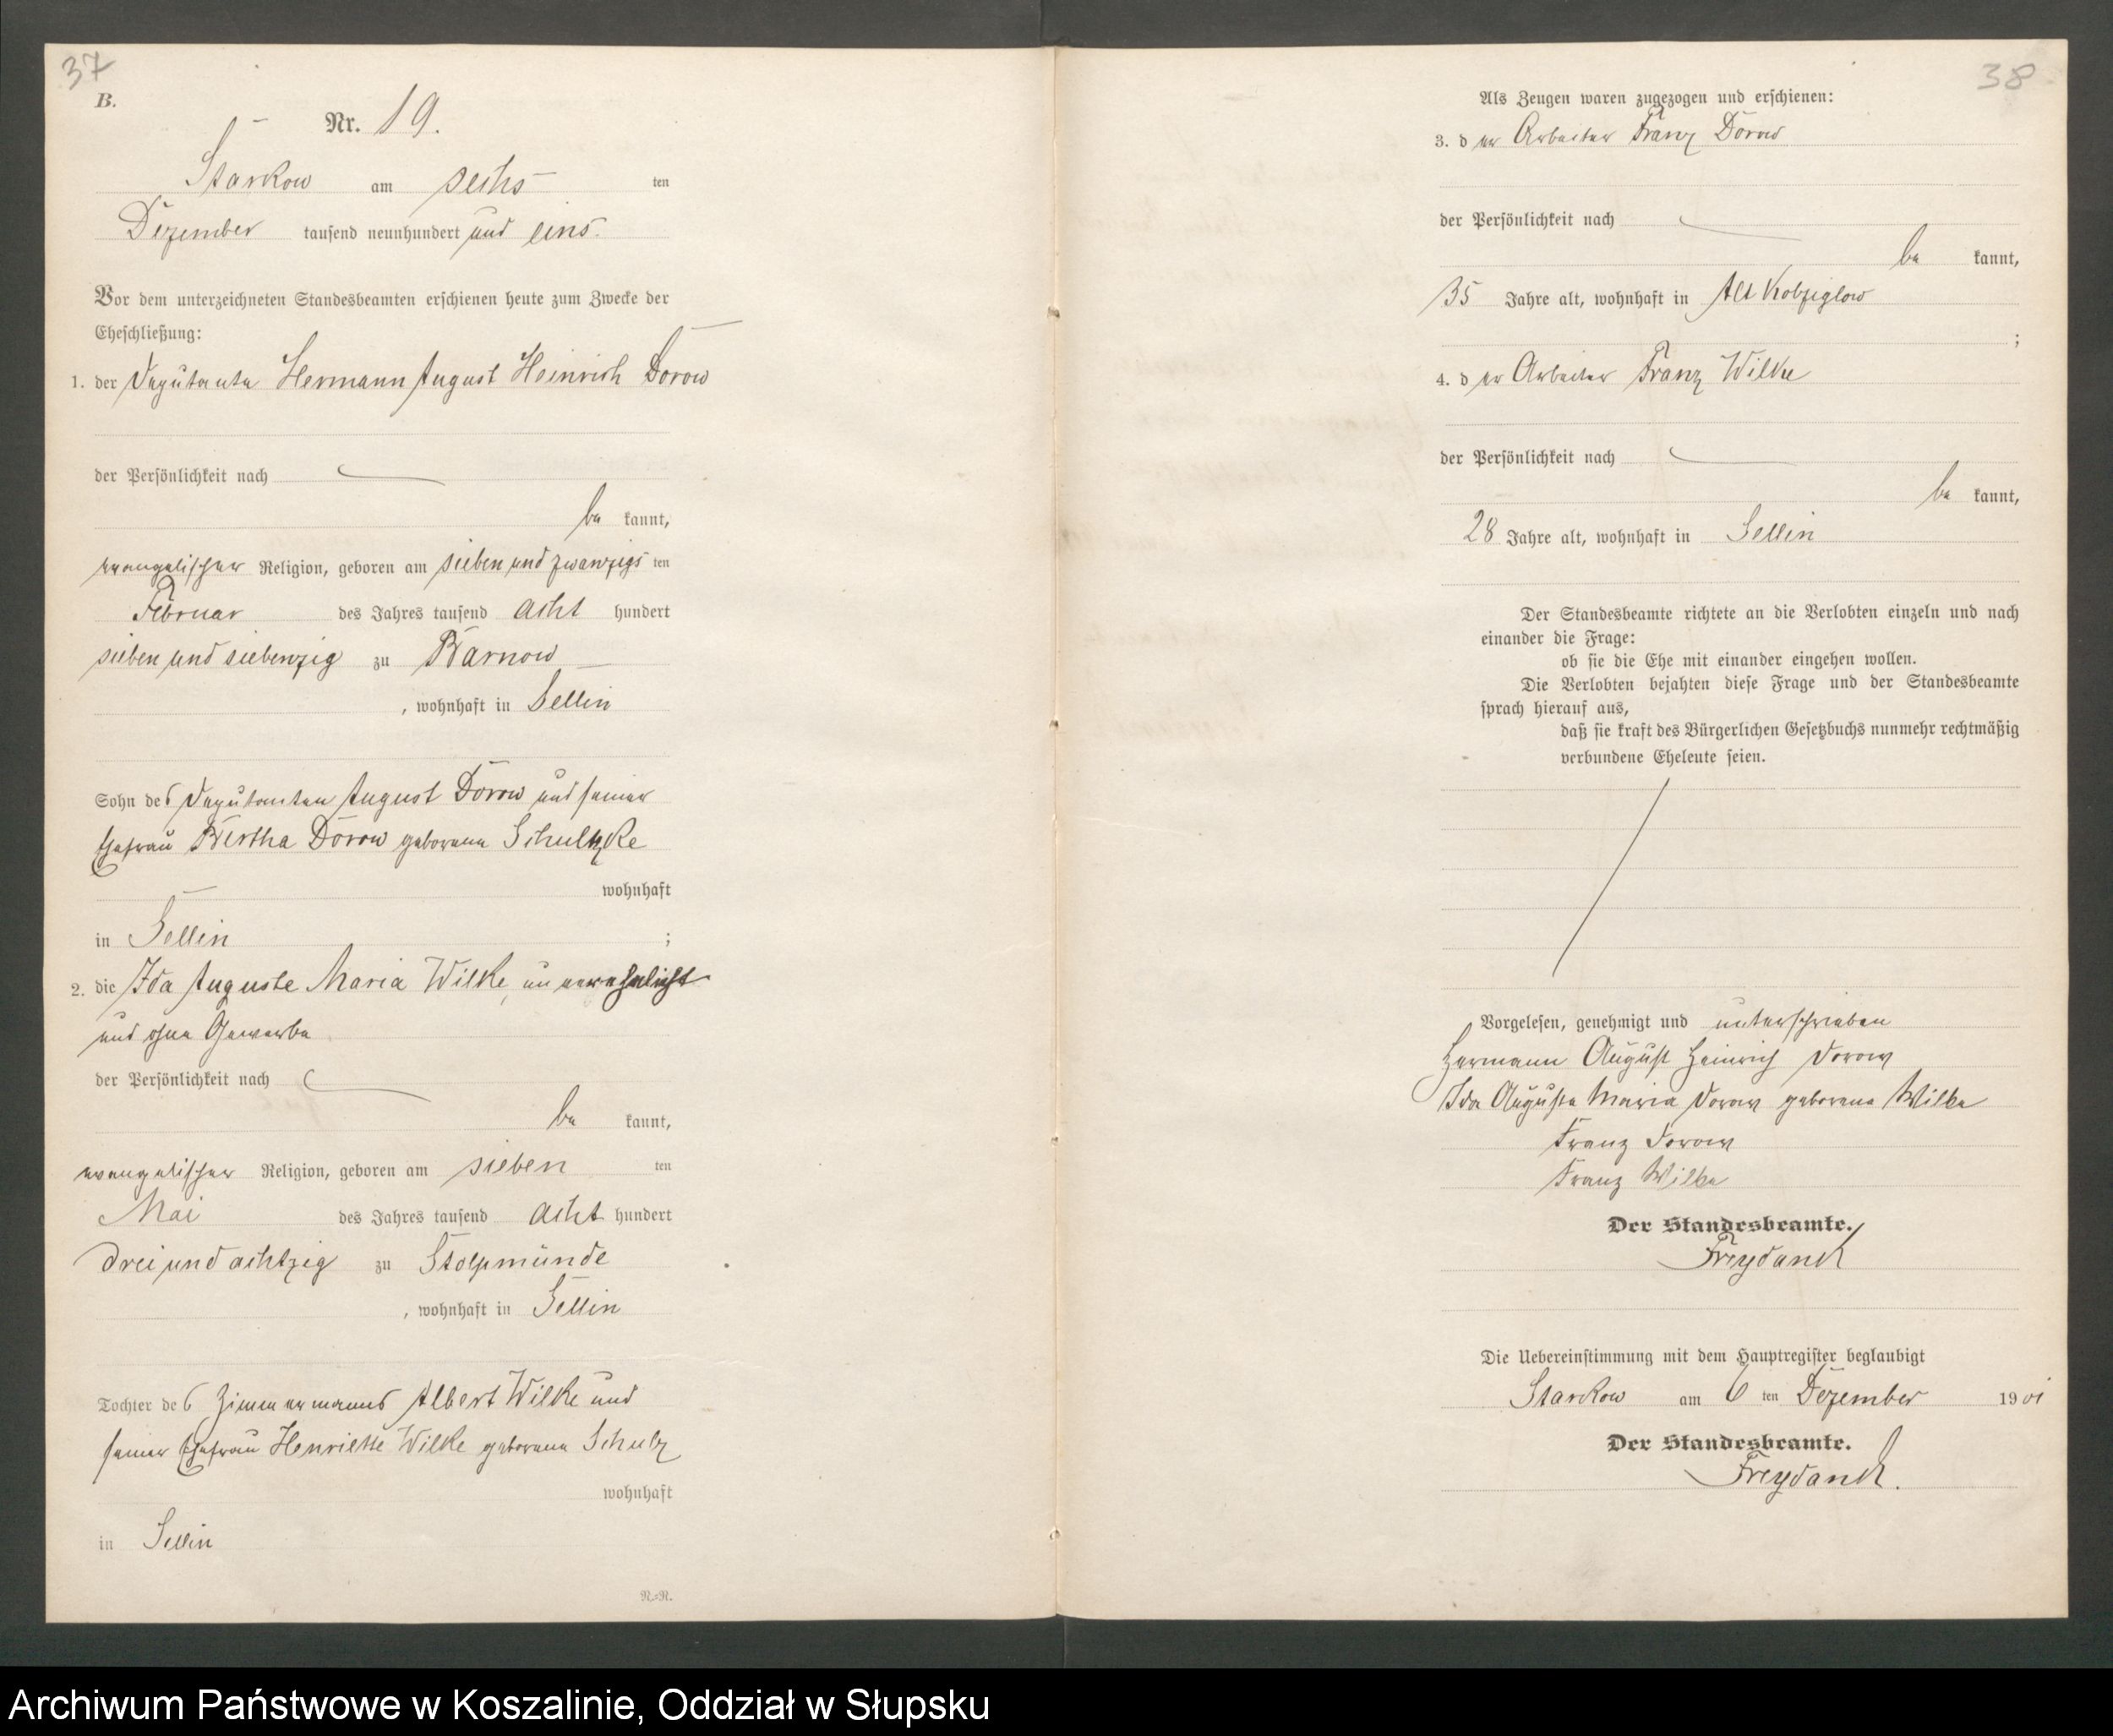 37
B.
Nr. 19.
Starkow am sechs ten
Dezember tausend neunhundert und eins.
Vor dem unterzeichneten Standesbeamten erschienen heute zum Zwecke der
Eheschließung:
1. der Deputante Hermann August Heinrich Dorow
der Persönlichkeit nach
be kannt,
evangelischer Religion, geboren am sieben und zwanzigs ten
Februar des Jahres tausend acht hundert
sieben und siebenzig zu Barnow
, wohnhaft in Sellin
Sohn des Deputanten August Dorow und seiner
Ehefrau Bertha Dorow geborene Schultzke
wohnhaft
in Sellin ;
2. die Ida Auguste Maria Wilke, unverehelicht
und ohne Gewerbe
der Persönlichkeit nach
be kannt,
evangelischer Religion, geboren am sieben ten
Mai des Jahres tausend acht hundert
drei und achtzig zu Stolpmünde
, wohnhaft in Sellin
Tochter des Zimmermanns Albert Wilke und
seiner Ehefrau Henriette Wilke geborene Schulz
wohnhaft
in Sellin
N.=N.
38
Als Zeugen waren zugezogen und erschienen:
3. d er Arbeiter Franz Dorow
der Persönlichkeit nach
be kannt,
35 Jahre alt, wohnhaft in Alt Kolziglow
;
4. d er Arbeiter Franz Wilke
der Persönlichkeit nach
be kannt,
28 Jahre alt, wohnhaft in Sellin
Der Standesbeamte richtete an die Verlobten einzeln und nach
einander die Frage:
ob sie die Ehe mit einander eingehen wollen.
Die Verlobten bejahten diese Frage und der Standesbeamte
sprach hierauf aus,
daß sie kraft des Bürgerlichen Gesetzbuchs nunmehr rechtmäßig
verbundene Eheleute seien.
Vorgelesen, genehmigt und unterschrieben
Hermann August Heinrich Dorow
Ida Auguste Maria Dorow geborene Wilke
Franz Dorow
Franz Wilke
Der Standesbeamte.
Freydanck
Die Uebereinstimmung mit dem Hauptregister beglaubigt
Starkow am 6 ten Dezember 1901
Der Standesbeamte.
Freydanck.
Archiwum Państwowe w Koszalinie, Oddział w Słupsku